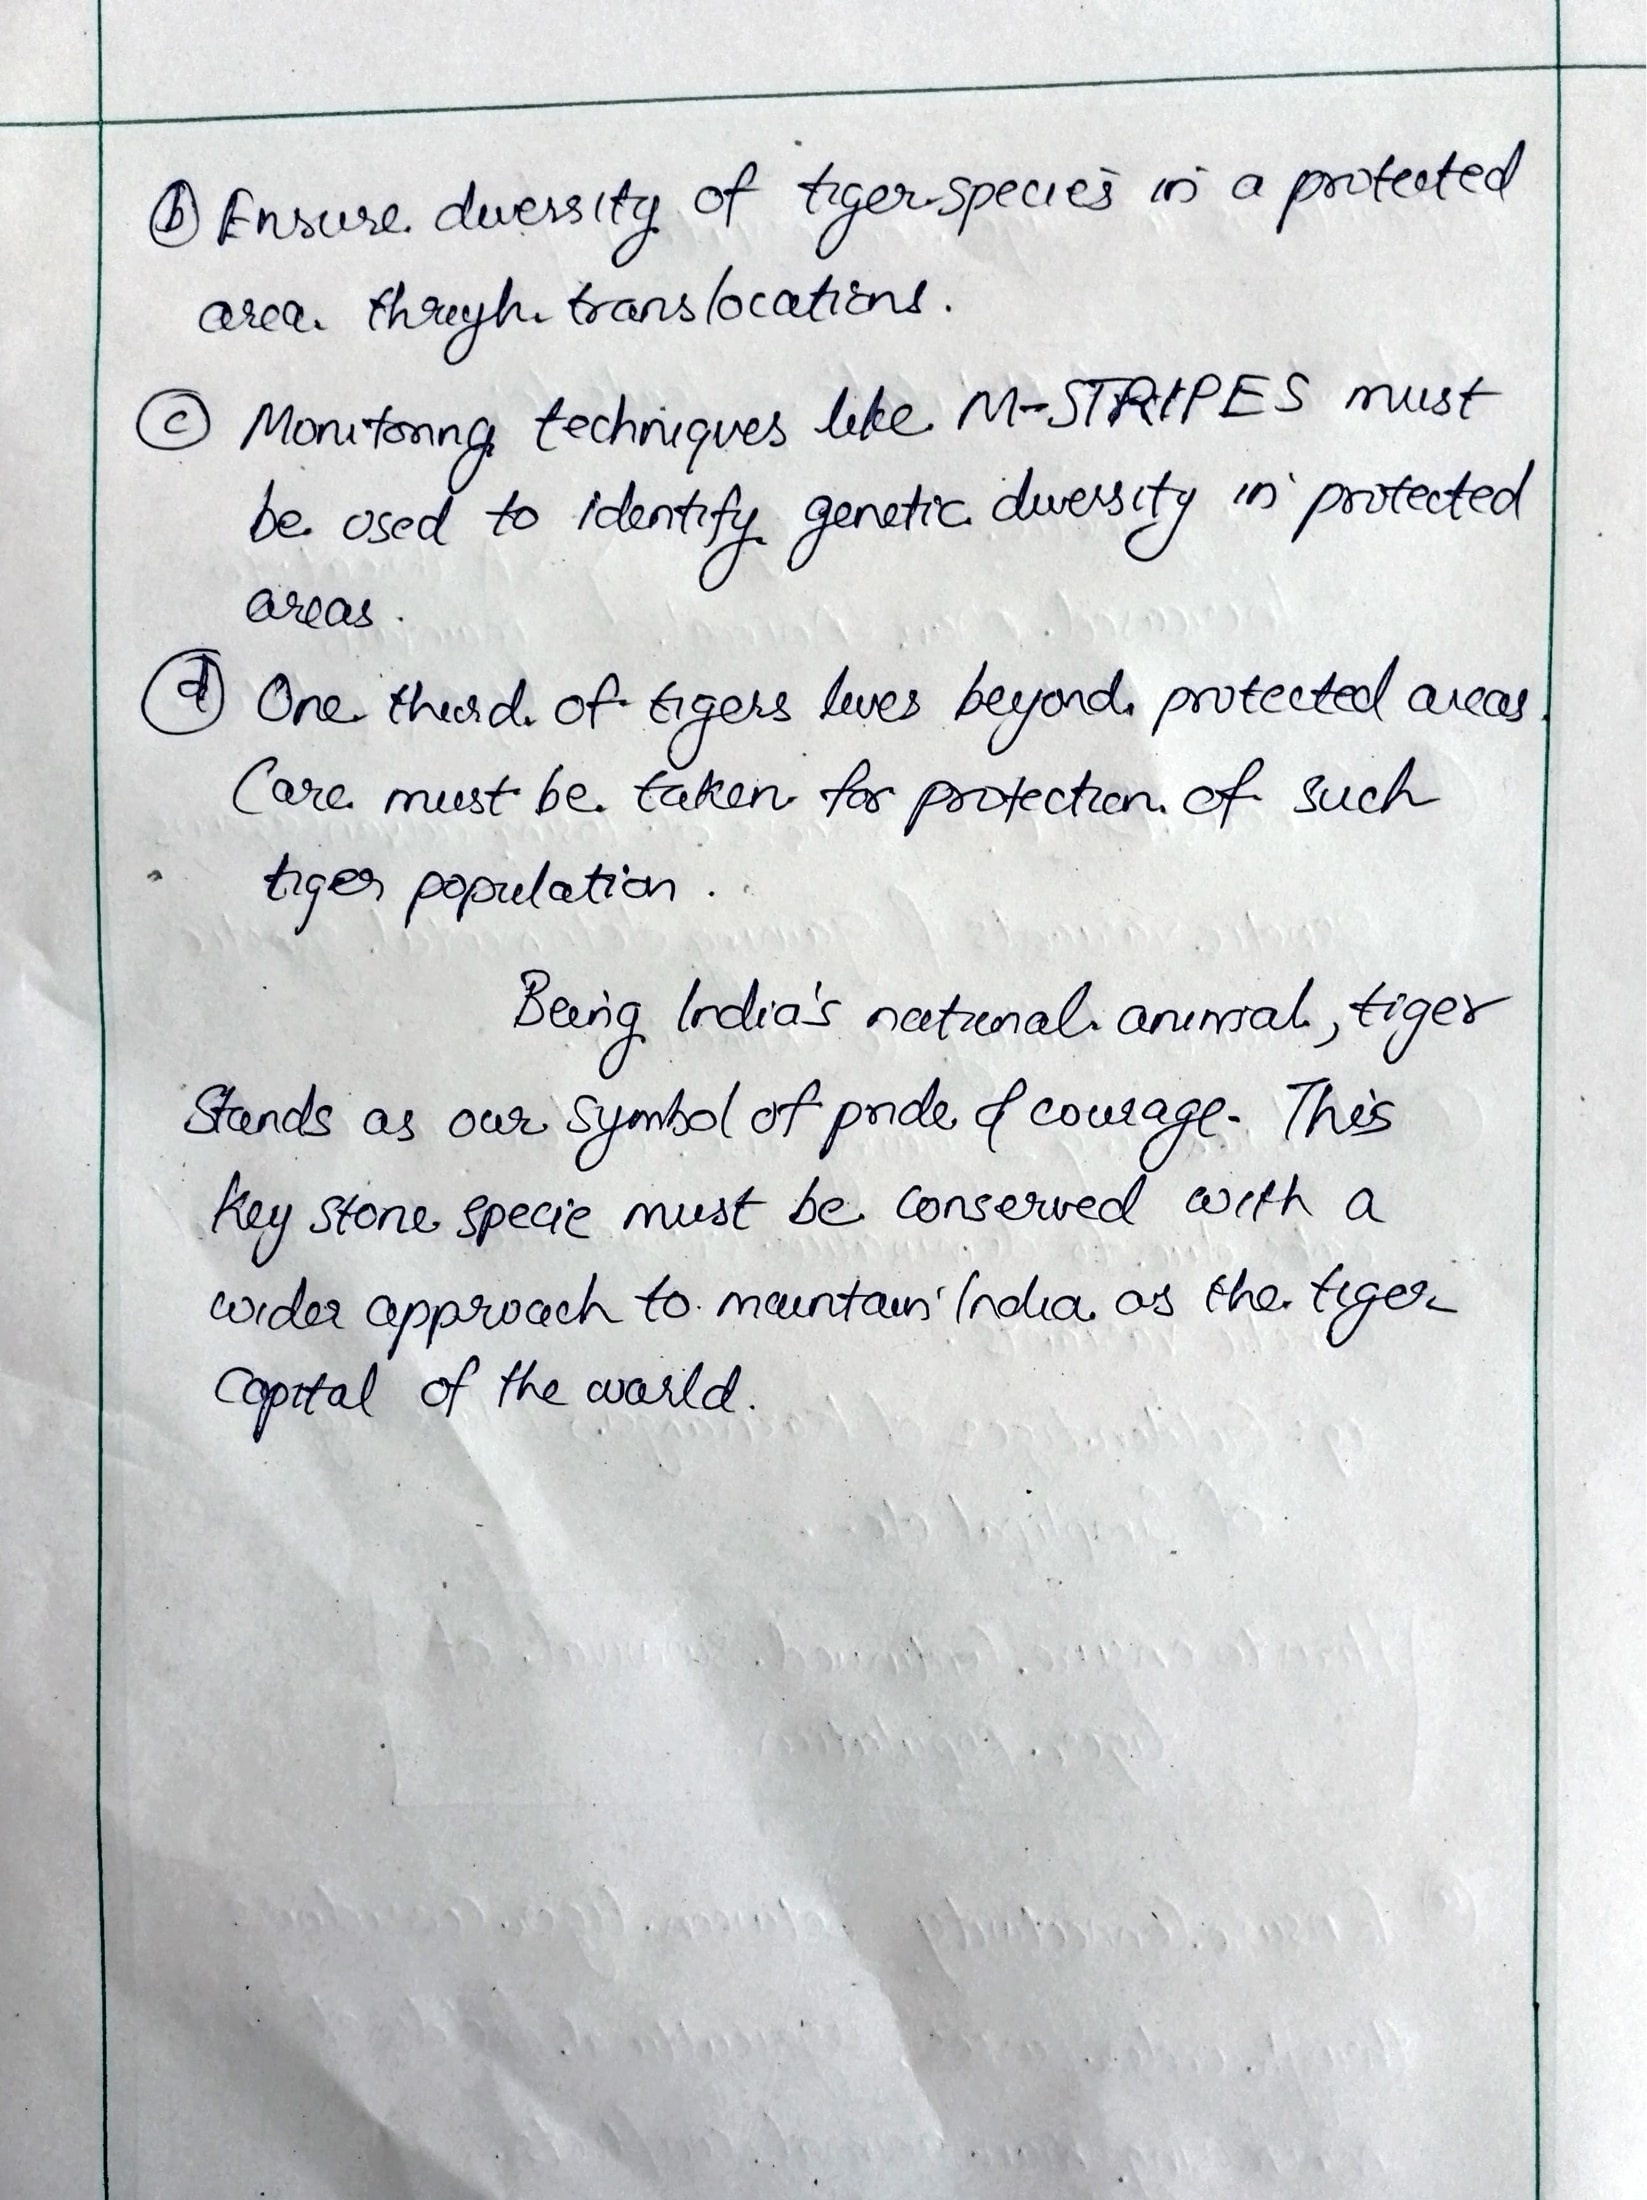 (b) Ensure diversity of tiger species in a protected
area through translocations.
(c) Monitoring techniques like M-STRIPES must
be used to identify genetic diversity in protected
areas.
(d) One third of tigers lives beyond protected areas.
Care must be taken for protection of such
tiger population.
Being India's national animal, tiger
Stands as our symbol of pride & courage. This
key stone specie must be conserved with a
wider approach to maintain India as the tiger
capital of the world.